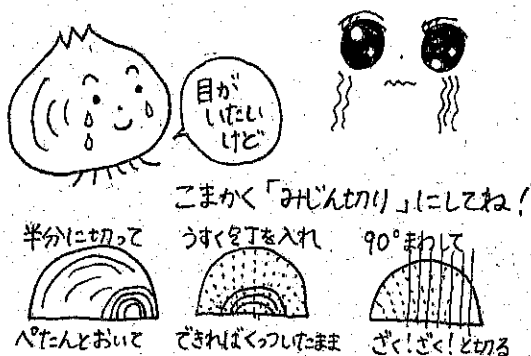 目が
いたい
けど
こまかく「みじん切り」にしてね!
半分に切って
ぺたんとおいて
うすく包丁を入れ
できればくっついたまま
90°まわして
ざく!ざく!と切る